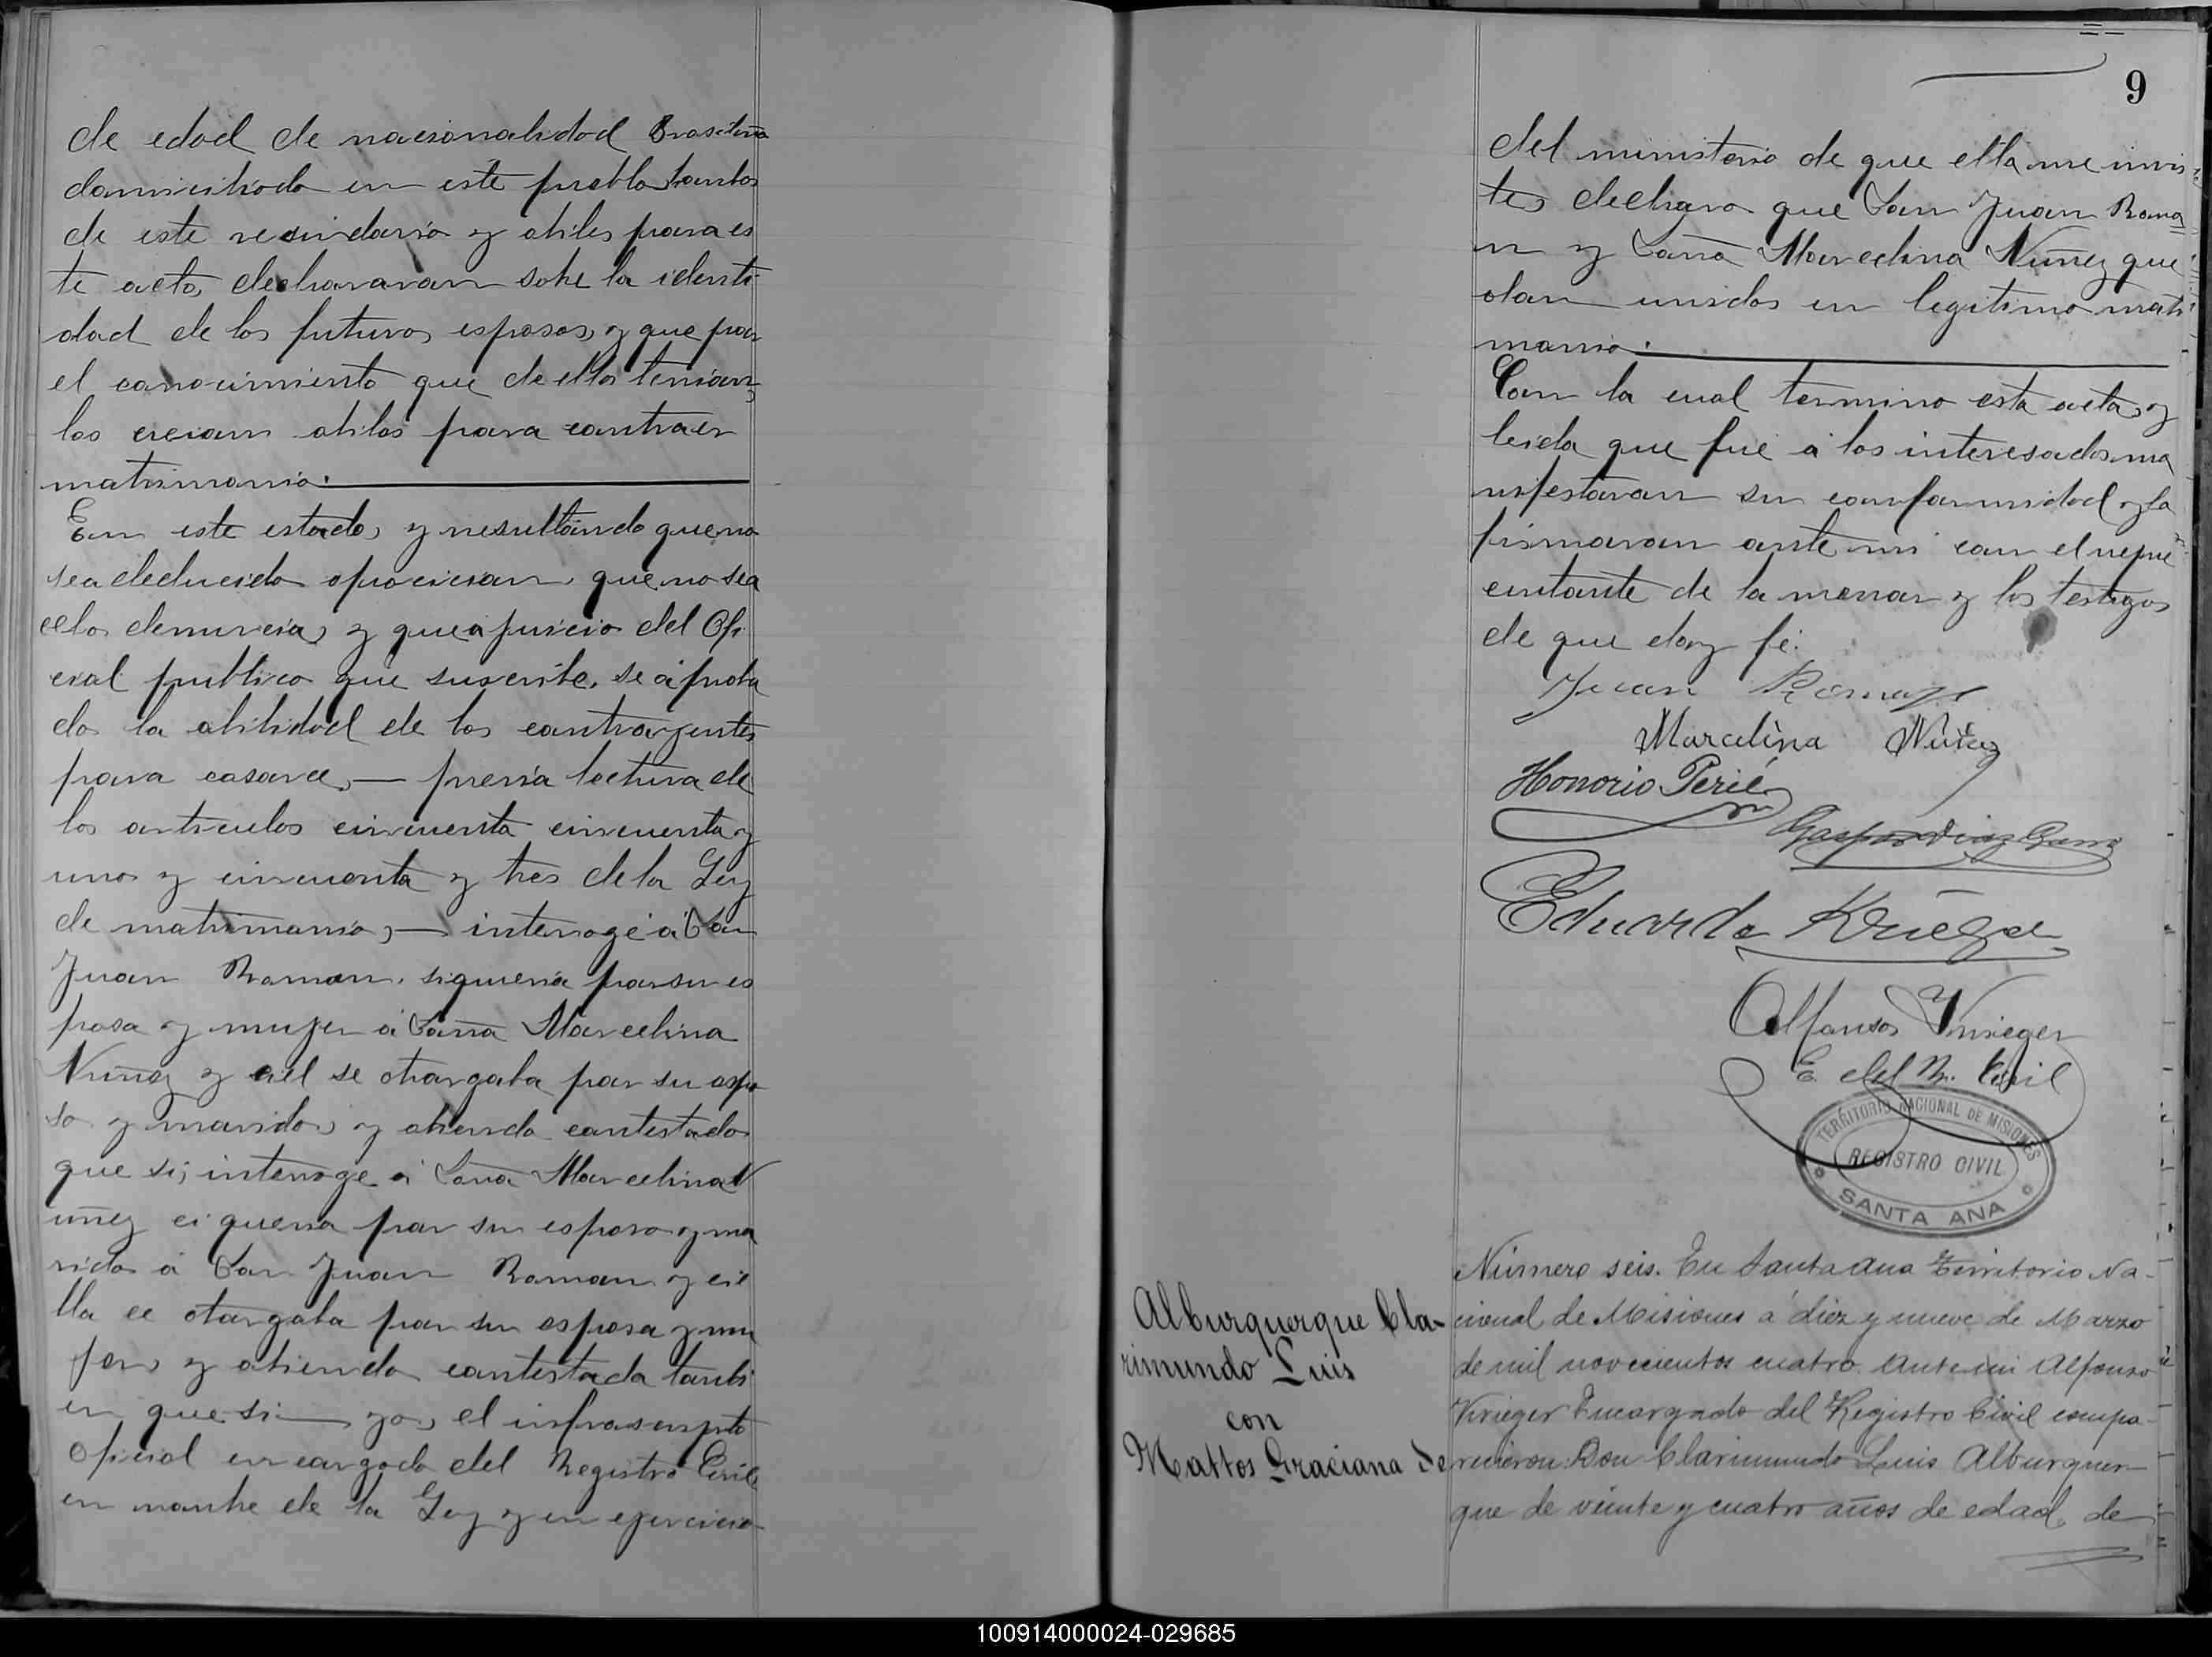 de edad de nacionalidad Brasilera
domiciliado en este pueblo tanbos
de este vesindario y abiles para es
te acto, declararan sobe la identi
dad de los futuros esposos, y que por
el conocimiento que de ellos tenian,
los creian abilos para contraer
matrimonio.
En este estado, y resultando que no
sea deducido oposicion, que no sea
echo denuncia, y que a juicio del Ofi
cial publico que suscribe, se a proba
do la abilidad de los contrayentes
para casarce,— previa lectura de
los articulos cincuenta cincuenta y
uno y cincuenta y tres de la Ley
de matrimonio,— interoge á Don
Juan Roman, siqueria por su es
posa y mujer á Doña Marcelina
Nuñez y ael se otorgaba por su espo
so y marido, y abiendo contestado
que si; interoge á Doña Marcelina N
uñez ci queria por su esposo y ma
rido á Don Juan Roman y ci e
lla ce otorgaba por su esposa y mu
jer, y abiendo contestada tanbi
en que si— yo, el infrascripto
Oficial encargado del Registro Civil
en nonbe de la Ley y en ejercicio
9
del ministerio de que ella me invis
te, declaro que Don Juan Roma
n y Doña Marcelina Nuñez que
dan unidos en legitimo matri
monio.
Con la cual termino esta acta, y
leida que fue á los interesados ma
nifestaron su conformidad y la
firmaran ante mi con el repre
centante de la menor y los testigos
de que doy fé.
Juan Roman
Marcelina Nuñez
Honorio Perié
Gaspar Diaz
Eduardo Krieger
Alfonso Krieger
E. del R. Civil
TERRITORIO NACIONAL DE MISIONES
REGISTRO CIVIL
SANTA ANA
Alburquerque Cla-
rimundo Luis
con
Mattos Graciana de
Número seis. En Santa Ana Territorio Na-
cional de Misiones á diez y nueve de Marzo
de mil novecientos cuatro. Ante mi Alfonso
Krieger Encargado del Registro Civil compa-
recieron: Don Clarimundo Luis Alburquer-
que de veinte y cuatro años de edad, de
100914000024-029685